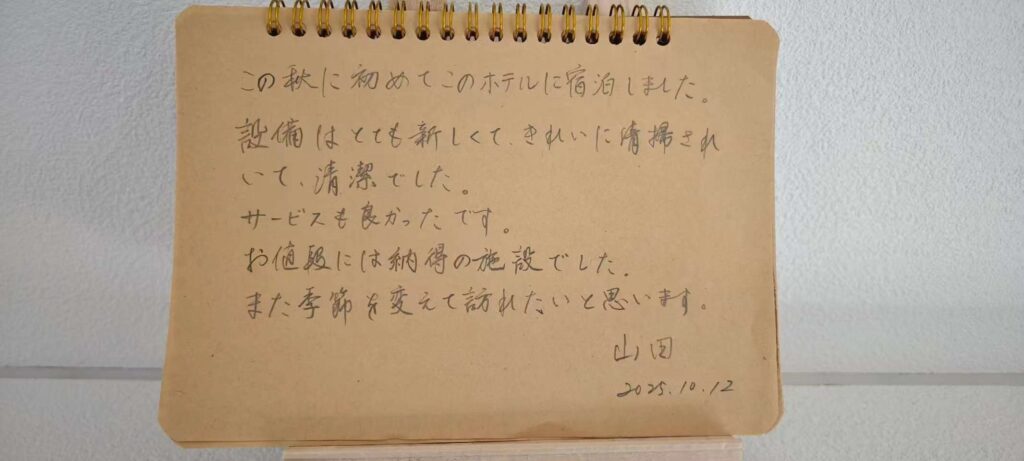 この秋に初めてこのホテルに宿泊しました。
設備はとても新しくて、きれいに清掃され
いて、清潔でした。
サービスも良かったです。
お値段には納得の施設でした。
また季節を変えて訪れたいと思います。
山田
2025.10.12